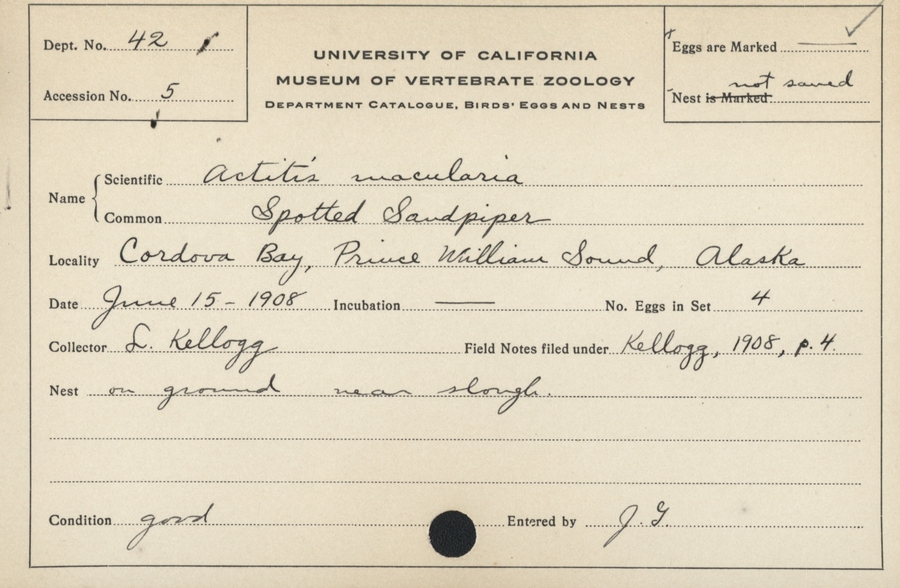 Dept. No. 42
UNIVERSITY OF CALIFORNIA
MUSEUM OF VERTEBRATE ZOOLOGY
DEPARTMENT CATALOGUE, BIRDS' EGGS AND NESTS
Accession No. 5
Eggs are Marked ——
not saved
Nest is Marked
Name
Scientific Actitis macularia
Common Spotted Sandpiper
Locality Cordova Bay, Prince William Sound, Alaska
Date June 15 - 1908 Incubation —— No. Eggs in Set 4
Collector L. Kellogg Field Notes filed under Kellogg, 1908, p. 4.
Nest on ground near slough.
Condition good Entered by J. G.